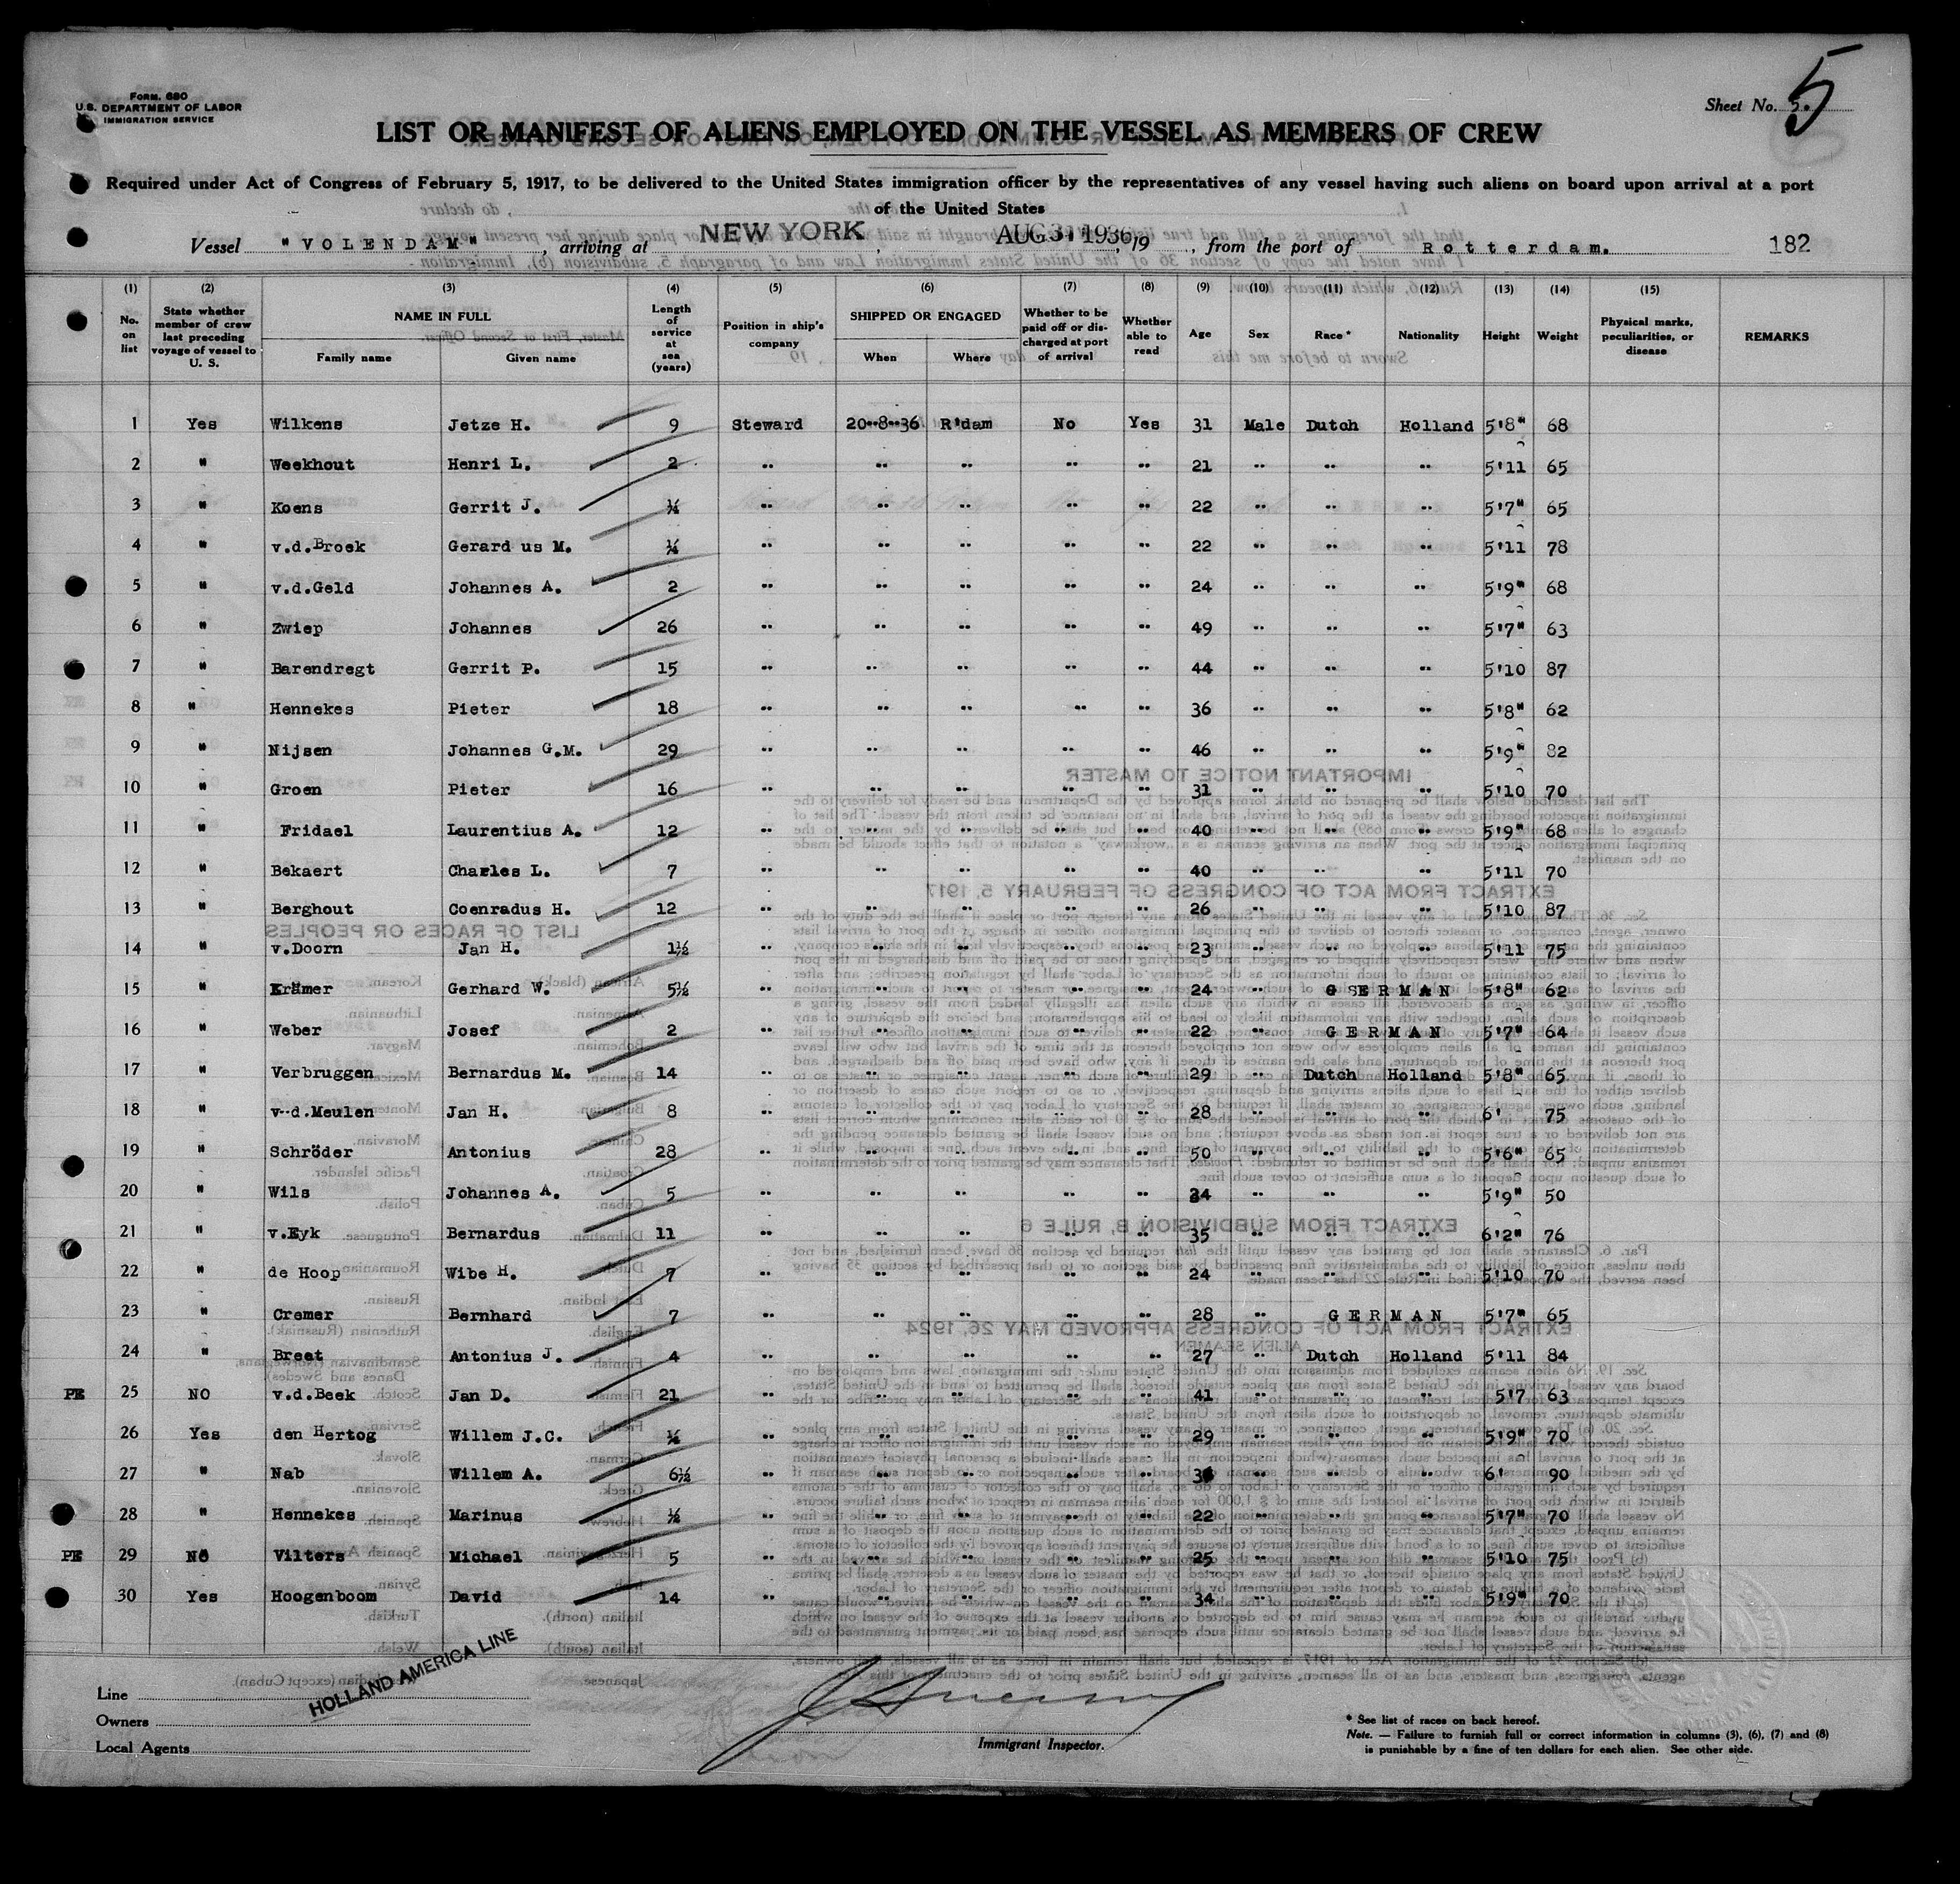 Form. 680
U.S. DEPARTMENT OF LABOR
IMMIGRATION SERVICE
Sheet No. 5.
5
LIST OR MANIFEST OF ALIENS EMPLOYED ON THE VESSEL AS MEMBERS OF CREW
Required under Act of Congress of February 5, 1917, to be delivered to the United States immigration officer by the representatives of any vessel having such aliens on board upon arrival at a port
of the United States
Vessel "VOLENDAM", arriving at NEW YORK, AUG 31 1936, 19, from the port of Rotterdam. 182
(1) (2) (3) (4) (5) (6) (7) (8) (9) (10) (11) (12) (13) (14) (15)
No. on list | State whether member of crew last preceding voyage of vessel to U. S. | NAME IN FULL Family name Given name | Length of service at sea (years) | Position in ship's company | SHIPPED OR ENGAGED When Where | Whether to be paid off or discharged at port of arrival | Whether able to read | Age | Sex | Race * | Nationality | Height | Weight | Physical marks, peculiarities, or disease | REMARKS
1 Yes Wilkens Jetze H. 9 Steward 20-8-36 R'dam No Yes 31 Male Dutch Holland 5'8" 68
2 " Weekhout Henri L. 2 " " " " " 21 " " " 5'11 65
3 " Koens Gerrit J. ¼ " " " " " 22 " " " 5'7" 65
4 " v.d.Broek Gerard us M. ¼ " " " " " 22 " " " 5'11 78
5 " v.d.Geld Johannes A. 2 " " " " " 24 " " " 5'9" 68
6 " Zwiep Johannes 26 " " " " " 49 " " " 5'7" 63
7 " Barendregt Gerrit P. 15 " " " " " 44 " " " 5'10 87
8 " Hennekes Pieter 18 " " " " " 36 " " " 5'8" 62
9 " Nijsen Johannes G.M. 29 " " " " " 46 " " " 5'9" 82
10 " Groen Pieter 16 " " " " " 31 " " " 5'10 70
11 " Fridael Laurentius A. 12 " " " " " 40 " " " 5'9" 68
12 " Bekaert Charles L. 7 " " " " " 40 " " " 5'11 70
13 " Berghout Coenradus H. 12 " " " " " 26 " " " 5'10 87
14 " v.Doorn Jan H. 1½ " " " " " 23 " " " 5'11 75
15 " Krämer Gerhard W. 5½ " " " " " 24 " GERMAN 5'8" 62
16 " Weber Josef 2 " " " " " 22 " GERMAN 5'7" 64
17 " Verbruggen Bernardus M. 14 " " " " " 29 " Dutch Holland 5'8" 65
18 " v-d.Meulen Jan H. 8 " " " " " 28 " " " 6' 75
19 " Schröder Antonius 28 " " " " " 50 " " " 5'6" 65
20 " Wils Johannes A. 5 " " " " " 34 " " " 5'9" 50
21 " v.Eyk Bernardus 11 " " " " " 35 " " " 6'2" 76
22 " de Hoop Wibe H. 7 " " " " " 24 " " " 5'10 70
23 " Cremer Bernhard 7 " " " " " 28 " GERMAN 5'7" 65
24 " Breet Antonius J. 4 " " " " " 27 " Dutch Holland 5'11 84
PE 25 NO v.d.Beek Jan D. 21 " " " " " 41 " " " 5'7 63
26 Yes den Hertog Willem J.C. " " " " " 29 " " " 5'9" 70
27 " Nab Willem A. 6½ " " " " " " " " 6' 90
28 " Hennekes Marinus ½ " " " " " 22 " " " 5'7" 70
PE 29 NO Vilters Michael 5 " " " " " 25 " " " 5'10 75
30 Yes Hoogenboom David 14 " " " " " 34 " " " 5'9" 70
Line
HOLLAND AMERICA LINE
Owners
Local Agents
Immigrant Inspector.
* See list of races on back hereof.
Note. — Failure to furnish full or correct information in columns (3), (6), (7) and (8)
is punishable by a fine of ten dollars for each alien. See other side.